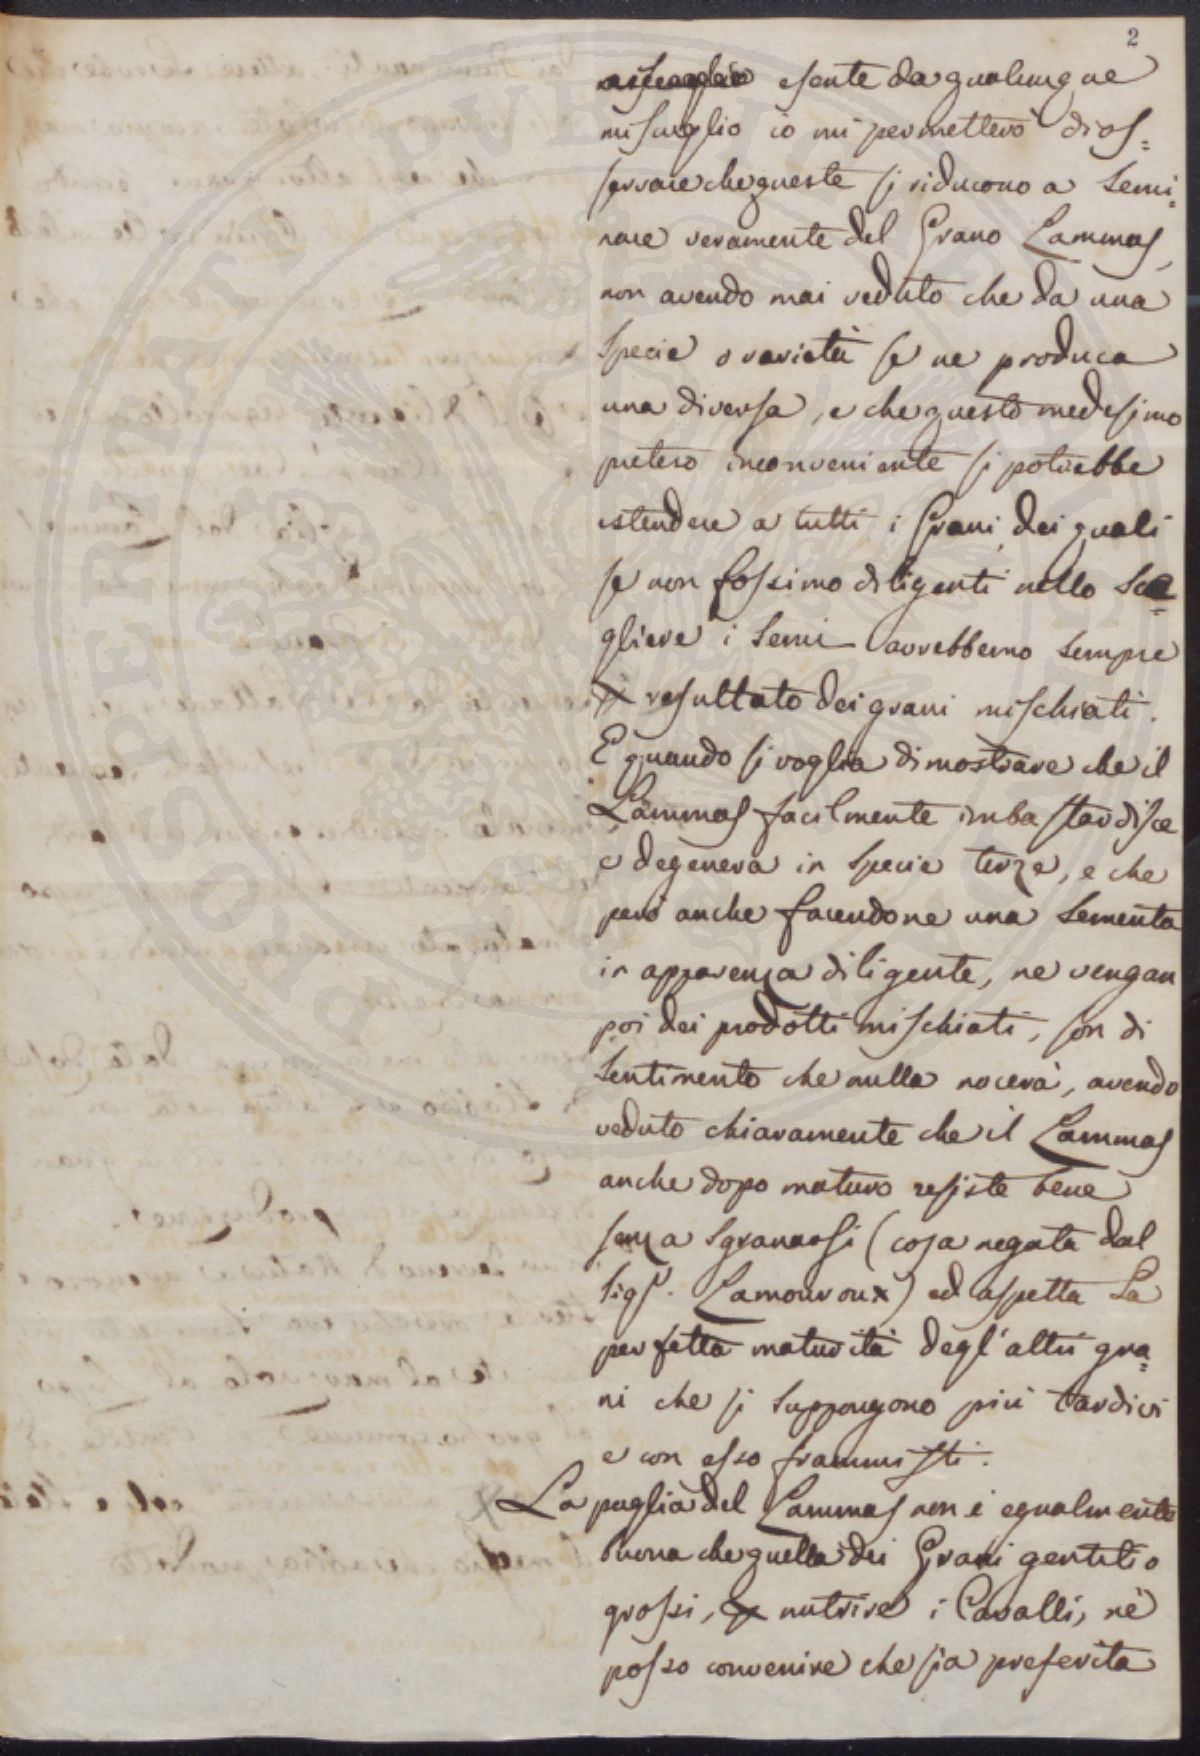 2
esente da qualunque
miscuglio io mi permetterò di os=
servare che queste si riducono a semi=
nare veramente del Grano Lammas,
non avendo mai veduto che da una
specie o varietà se ne produca
una diversa, e che questo medesimo
preteso inconveniente si potrebbe
estendere a tutti i Grani, dei quali
se non fossimo diligenti nello sce=
gliere i semi avrebbemo sempre
resultato dei grani mischiati.
E quando si voglia dimostrare che il
Lammas facilmente imbastardisce
e degenera in specie terze, e che
però anche facendone una sementa
in apparenza diligente, ne vengan
poi dei prodotti mischiati, son di
sentimento che nulla nocerà, avendo
veduto chiaramente che il Lammas
anche dopo maturo resiste bene
senza sgranarsi (cosa negata dal
Sigr. Lamouroux) ed aspetta la
perfetta maturità degl'altri gra=
ni che si suppongono più tardivi
e con esso frammisti.
La paglia del Lammas non è egualmente
buona che quella dei Grani gentili o
grossi, nutrire i Cavalli, nè
posso convenire che sia preferita
PROSPERITATI PUBLICAE